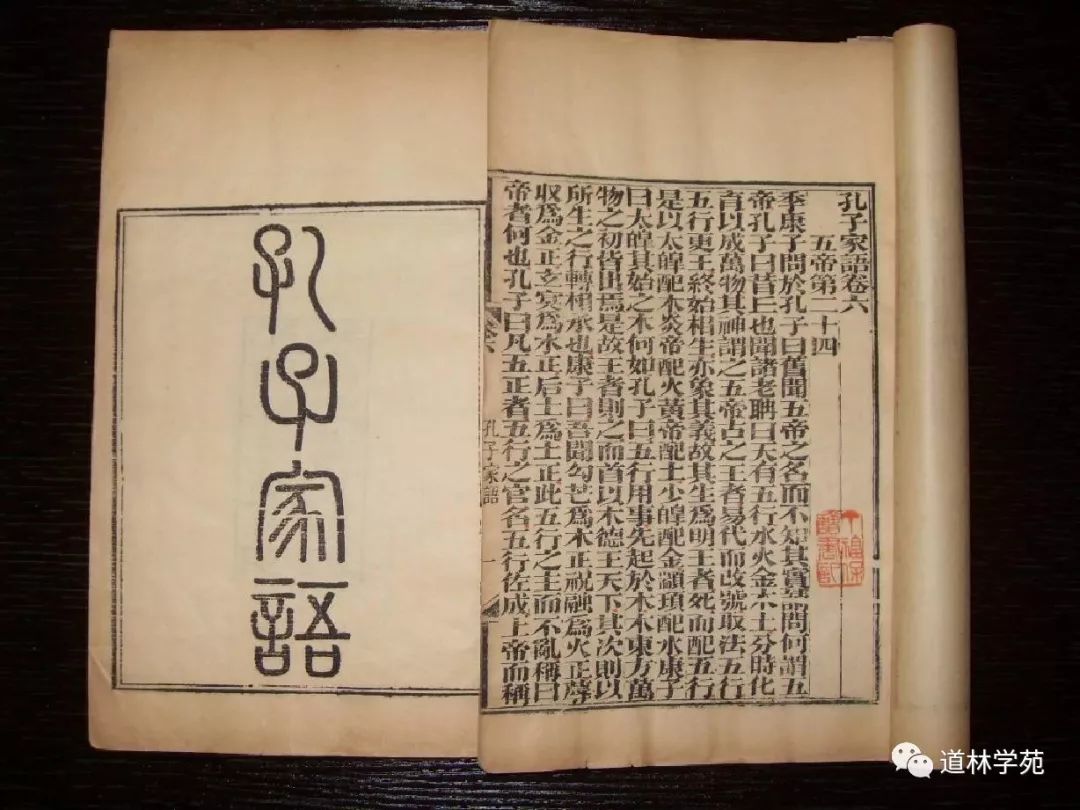 孔子家語卷六
五帝第二十四
季康子問於孔子曰舊聞五帝之名而不知其實請問何謂五
帝孔子曰昔丘也聞諸老聃曰天有五行水火金木土分時化
育以成萬物其神謂之五帝古之王者易代而改號取法五行
五行更王終始相生亦象其義故其生爲明王者死而配五行
是以太皞配木炎帝配火黃帝配土少皞配金顓頊配水康子
曰太皞其始之木何如孔子曰五行用事先起於木木東方萬
物之初皆出焉是故王者則之而首以木德王天下其次則以
所生之行轉相承也康子曰吾聞勾芒爲木正祝融爲火正蓐
収爲金正玄冥爲水正后土爲土正此五行之主而不亂稱曰
帝者何也孔子曰凡五正者五行之官名五行佐成上帝而稱
卷六 孔子家語 一
孔子家語
道林学苑